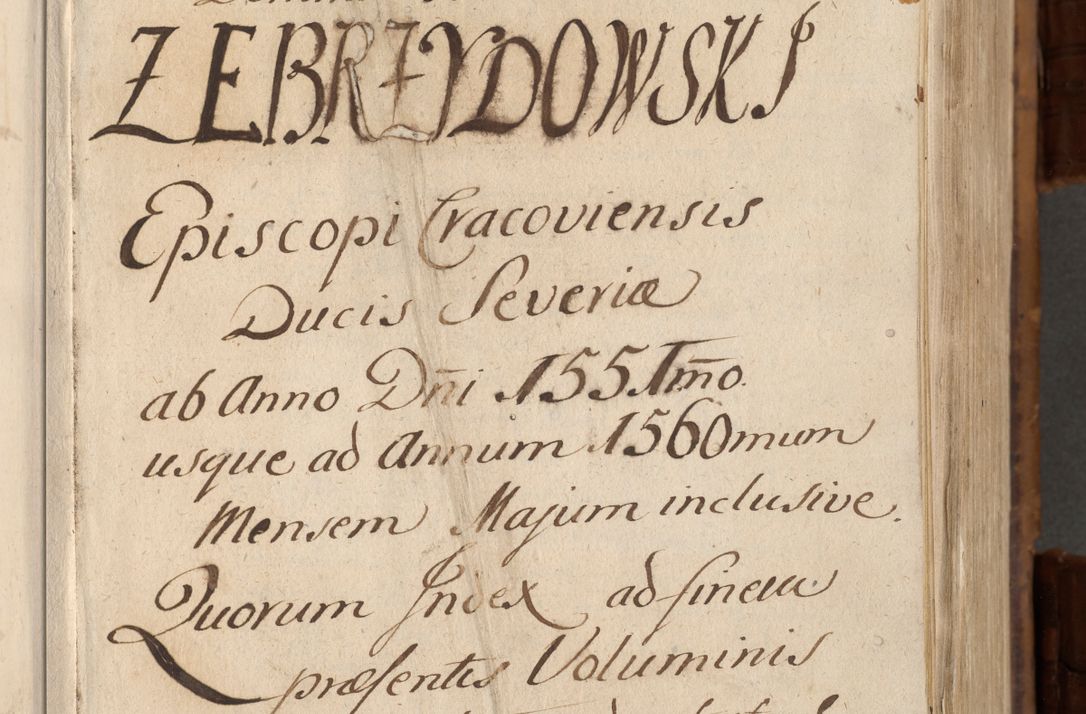 ZEBRZYDOWSKI
Episcopi Cracoviensis
Ducis Severiæ
ab Anno Dñi 1551mõ
usque ad Annum 1560mum
Mensem Majum inclusive.
Quorum Index ad finem
præsentis Voluminis